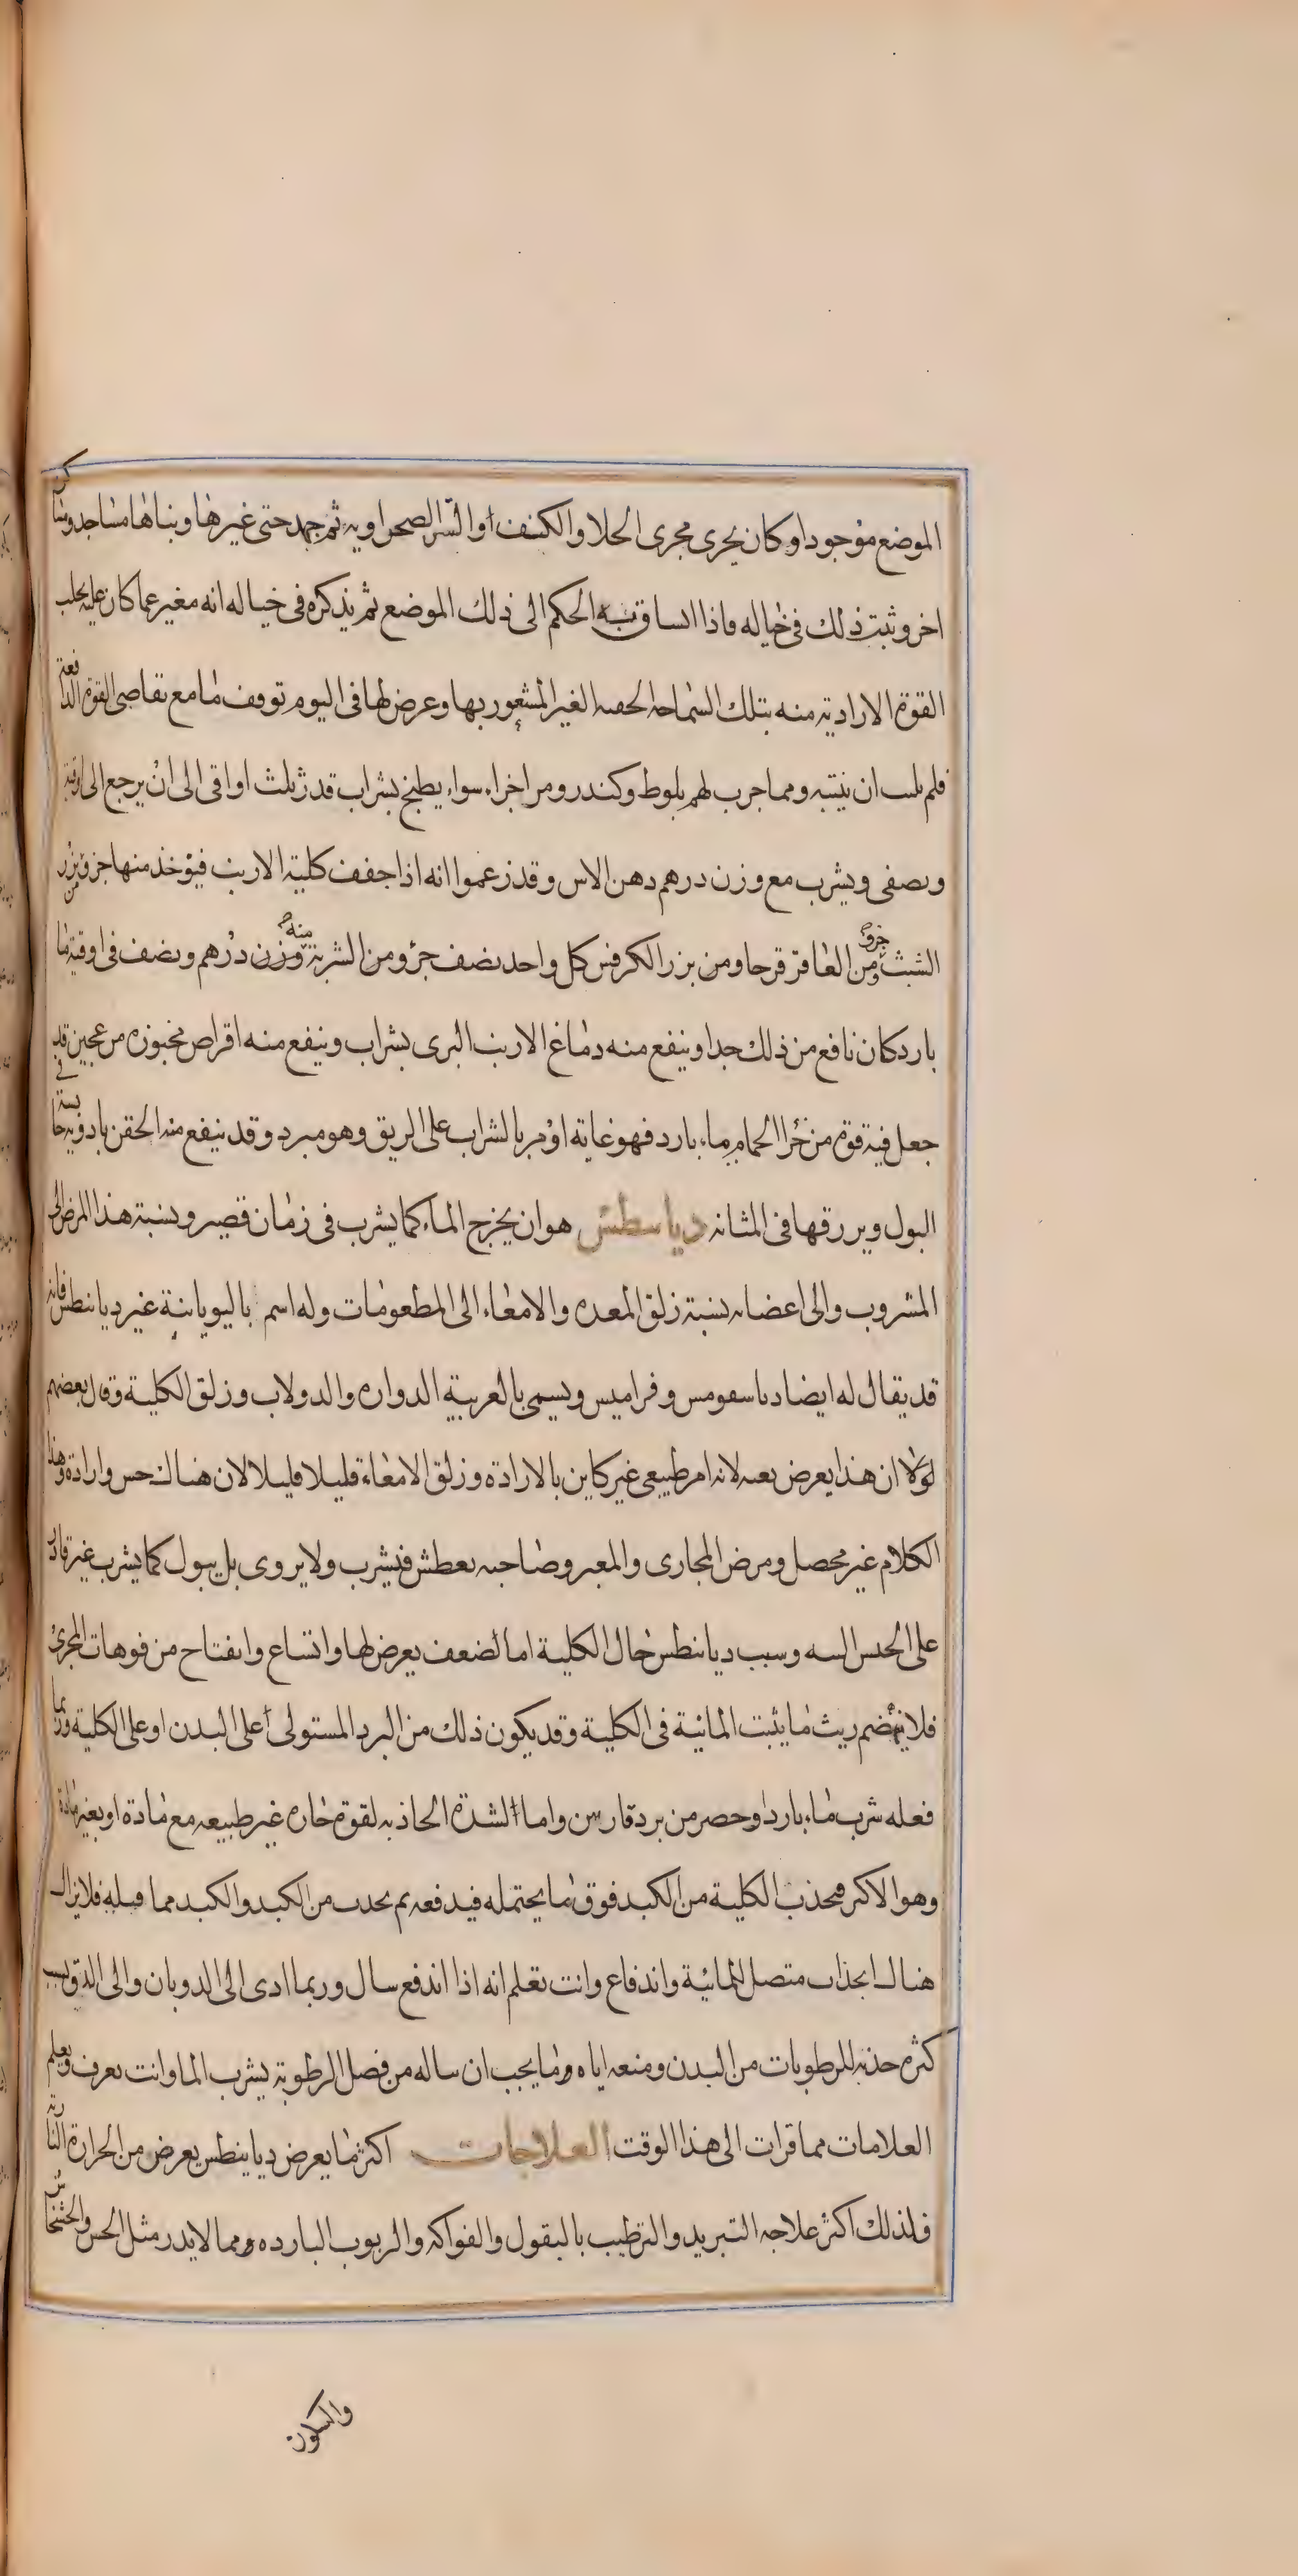 الموضع موجودا وكان يجرى مجرى الخلا والكنف او السر الصحراويه ثم جهد حتى غيرها وبناها مساجد ومساكن
اخر وثبت ذلك فى خياله فاذا انساق به الحكم الى ذلك الموضع ثم يذكره فى خياله انه مغير عما كان عليه بخلب
القوة الارادية منه بتلك السماحه الخفيه الغير المشعور بها وعرض لها فى اليوم توقف ما مع تقاصى القوة الدافعة
فلم يلبث ان ينتبه ومما جرب لهم بلوط وكندر ومر اجزاء سواء يطبخ بشراب قدر ثلث اواقى الى ان يرجع الى اوقية
ويصفى ويشرب مع وزن درهم دهن الاس وقد زعموا انه اذا جفف كلية الارنب فيؤخذ منها جزو وبزر
الشبث جزو ومن العاقر قرحا ومن بزر الكرفس كل واحد نصف جزو من الشربة منه وزن درهم ونصف فى اوقية ما
بارد كان نافع من ذلك جدا وينفع منه دماغ الارنب البرى بشراب وينفع منه اقراص مخبوزه من عجين قد
جعل فيه قوة من خرا الحمام بماء بارد فهو غاية او مر بالشراب على الريق وهو مبرد وقد ينفع منه الحقن بادوية حابسة
البول ويزرقها فى المثانه دياسطس هو ان يخرج الماء كما يشرب فى زمان قصير ونسبة هذا المرض الى
المشروب والى اعضائه نسبة زلق المعده والامعاء الى المطعومات وله اسم باليونانية غير ديانيطس فانه
قد يقال له ايضا دياسقومس وقراميس ويسمى بالعربية الدواره والدولاب وزلق الكلية وقال بعضهم
لولا ان هذا يعرض بغته لانه امر طبيعى غير كاين بالارادة وزلق الامعاء قليلا قليلا لان هناك حس وارادة وهذا
الكلام غير محصل ومرض المجارى والمعبر وصاحبه يعطش فيشرب ولا يروى بل يبول كما يشرب غير قادر
على الحبس البته وسبب ديانيطس حال الكلية اما لضعف يعرض لها واتساع وانفتاح من فوهات المجرى
فلا ينضم ريث ما يثبت المائية فى الكلية وقد يكون ذلك من البرد المستولى على البدن او على الكلية وربما
فعله شرب ماء بارد وحصر من برد قارس واما الشدة الجاذبه لقوة حاره غير طبيعيه مع مادة او بغير مادة
وهو الاكثر فيجذب الكلية من الكبد فوق ما يحتمله فيدفعه ثم يجذب من الكبد والكبد مما قبله فلا يزال
هناك انجذاب متصل للمائية واندفاع وانت تعلم انه اذا اندفع سال وربما ادى الى الذوبان والى الدق بسبب
كثرة جذبه للرطوبات من البدن ومنعه اياه ما يجب ان يناله من فضل الرطوبة يشرب الما وانت تعرف وتعلم
العلامات مما قرات الى هذا الوقت العلاجات اكثر ما يعرض ديانيطس يعرض من الحرارة النارية
فلذلك اكثر علاجه التبريد والترطيب بالبقول والفواكه والربوب البارده ومما لا يدر مثل الخس والخشخاش
والسكون